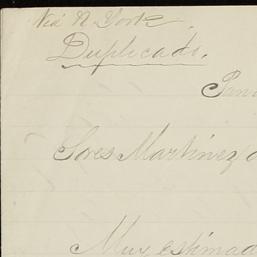 Via N York.
Duplicado.
Sores Martinez
Muy estimad